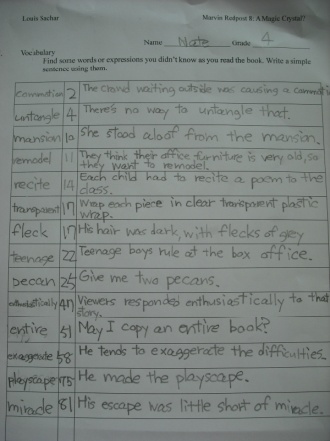 Louis Sachar Marvin Redpost 8: A Magic Crystal?
Name Nate Grade 4
Vocabulary
Find some words or expressions you didn't know as you read the book. Write a simple
sentence using them.
commotion 2 The crowd waiting outside was causing a commoti
untangle 4 There's no way to untangle that.
mansion 10 She stood aloof from the mansion.
remodel 11 They think their office furniture is very old, so
they want to remodel.
recite 14 Each child had to recite a poem to the
class.
transparent 17 Wrap each piece in clear transparent plastic
wrap.
fleck 17 His hair was dark, with flecks of grey
teenage 22 Teenage boys rule at the box office.
pecan 25 Give me two pecans.
enthusiastically 47 Viewers responded enthusiastically to that
story.
entire 51 May I copy an entire book?
exaggerate 58 He tends to exaggerate the difficulties.
playscape 75 He made the playscape.
miracle 81 His escape was little short of miracle.